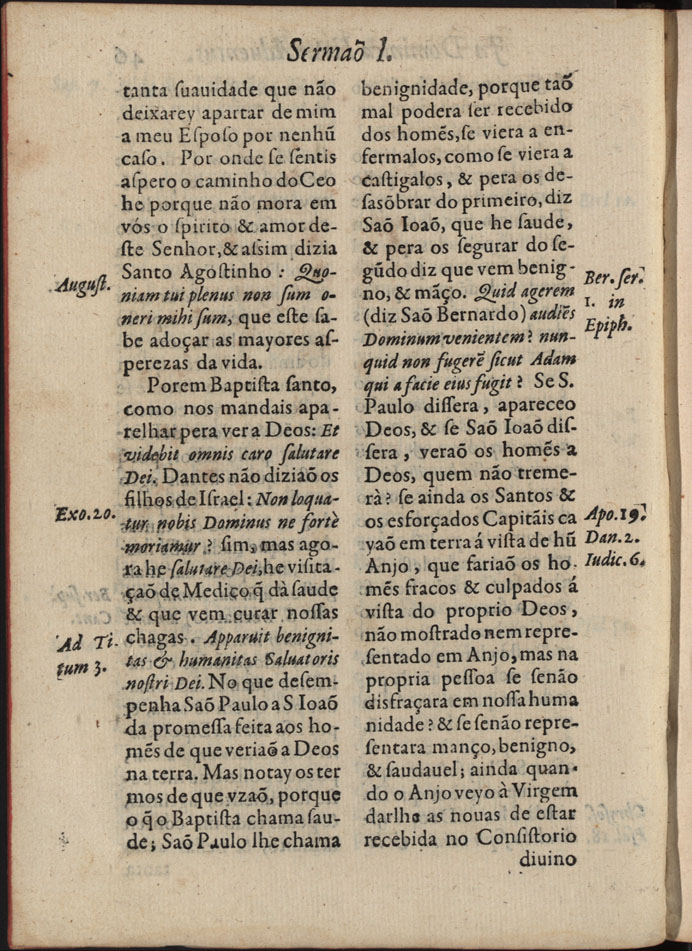 Sermaõ I.
tanta ſuauidade que não
deixarey apartar de mim
a meu Eſpoſo por nenhũ
caſo. Por onde ſe ſentis
aſpero o caminho do Ceo
he porque não mora em
vós o ſpirito & amor de-
ſte Senhor, & aſsim dizia
Santo Agoſtinho : Quo-
niam tui plenus non ſum o-
neri mihi ſum, que eſte ſa-
be adoçar as mayores aſ-
perezas da vida.
Porem Baptiſta ſanto,
como nos mandais apa-
relhar pera ver a Deos: Et
videbit omnis caro ſalutare
Dei. Dantes não diziaõ os
filhos de Iſrael: Non loqua-
tur nobis Dominus ne fortè
moriamur? ſim, mas ago-
ra he ſalutare Dei, he viſita-
çaõ de Medico q̃ dà ſaude
& que vem curar noſſas
chagas. Apparuit benigni-
tas & humanitas Saluatoris
noſtri Dei. No que deſem-
penha Saõ Paulo a S Ioaõ
da promeſſa feita aos ho-
mẽs de que veriaõ a Deos
na terra. Mas notay os ter
mos de que vzaõ, porque
o q̃ o Baptiſta chama ſau-
de; Saõ Paulo lhe chama
Auguſt.
Exo. 20.
Ad Ti-
tum 3.
benignidade, porque taõ
mal podera ſer recebido
dos homẽs, ſe viera a en-
fermalos, como ſe viera a
caſtigalos, & pera os de-
ſasõbrar do primeiro, diz
Saõ Ioaõ, que he ſaude,
& pera os ſegurar do ſe-
gũdo diz que vem benig-
no, & mãço. Quid agerem
(diz Saõ Bernardo) audiẽs
Dominum venientem? nun-
quid non fugerẽ ſicut Adam
qui a facie eius fugit? Se S.
Paulo diſſera, apareceo
Deos, & ſe Saõ Ioaõ diſ-
ſera, veraõ os homẽs a
Deos, quem não treme-
rà? ſe ainda os Santos &
os esforçados Capitãis ca
yaõ em terra á viſta de hũ
Anjo, que fariaõ os ho
mẽs fracos & culpados á
viſta do proprio Deos,
não moſtrado nem repre-
ſentado em Anjo, mas na
propria peſſoa ſe ſenão
disfraçara em noſſa huma
nidade? & ſe ſenão repre-
ſentara manço, benigno,
& ſaudauel; ainda quan-
do o Anjo veyo à Virgem
darlhe as nouas de eſtar
recebida no Conſiſtorio
diuino
Ber. ſer.
1. in
Epiph.
Apo. 19.
Dan. 2.
Iudic. 6.